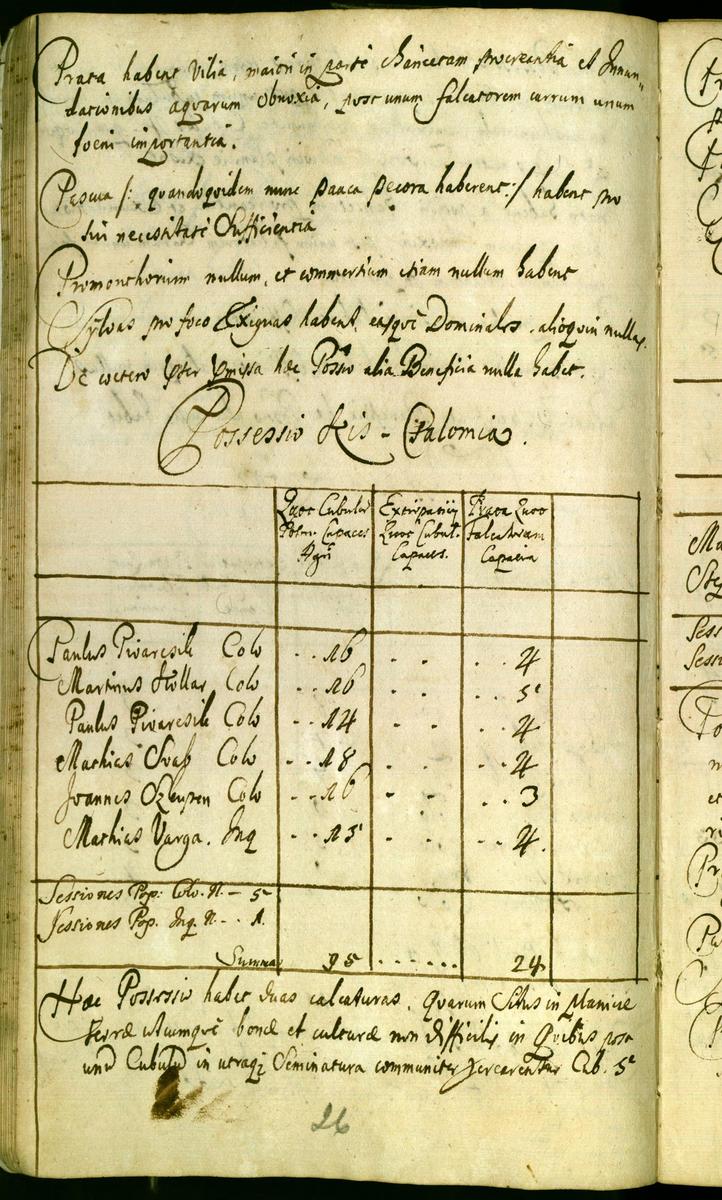 Prata habent Vilia, maiori in parte Charectam procreantia et Innun-
dationibus aquarum obnoxia, post unum falcatorem currum unum
foeni importantia.
Pascua /: quandoquidem nunc pauca pecora haberent :/ habent pro
sui necessitate Sufficientia
Promonthorium nullum, et commertium etiam nullum habent
Sylvas pro foco Exiguas habent, easque Dominales, alioquin nullas.
De coetero pter pmissa haec Possio alia Beneficia nulla habet.
Possessio Kis-Palomia.
Quot Cubulor Extirpatiy Prata Quot
Posin: Capaces Quot Cubul: Falcatorum
Agri Capaces. Capacia
Paulus Pivarcsik Colo . . 16 . . . . 4
Martinus Hollar Colo . . 16 . . . . 5
Paulus Pivarcsik Colo . . 14 . . . . 4
Mathias Colo . . 18 . . . . 4
Joannes Colo . . 16 . . . . 3
Mathias Varga. Inq . . 15 . . . . 4.
Sessiones Pop: Colo. N. – 5
Sessiones Pop. Inq. N. . . 1.
Summa 95 . . . . . . 24
Haec Possessio habet duas calcaturas, quarum Situs in planicie
terrae utcumque bonae et culturae non difficilis in Quibus post
unu Cubulu in utraq; Seminatura communiter Cub. 5
26